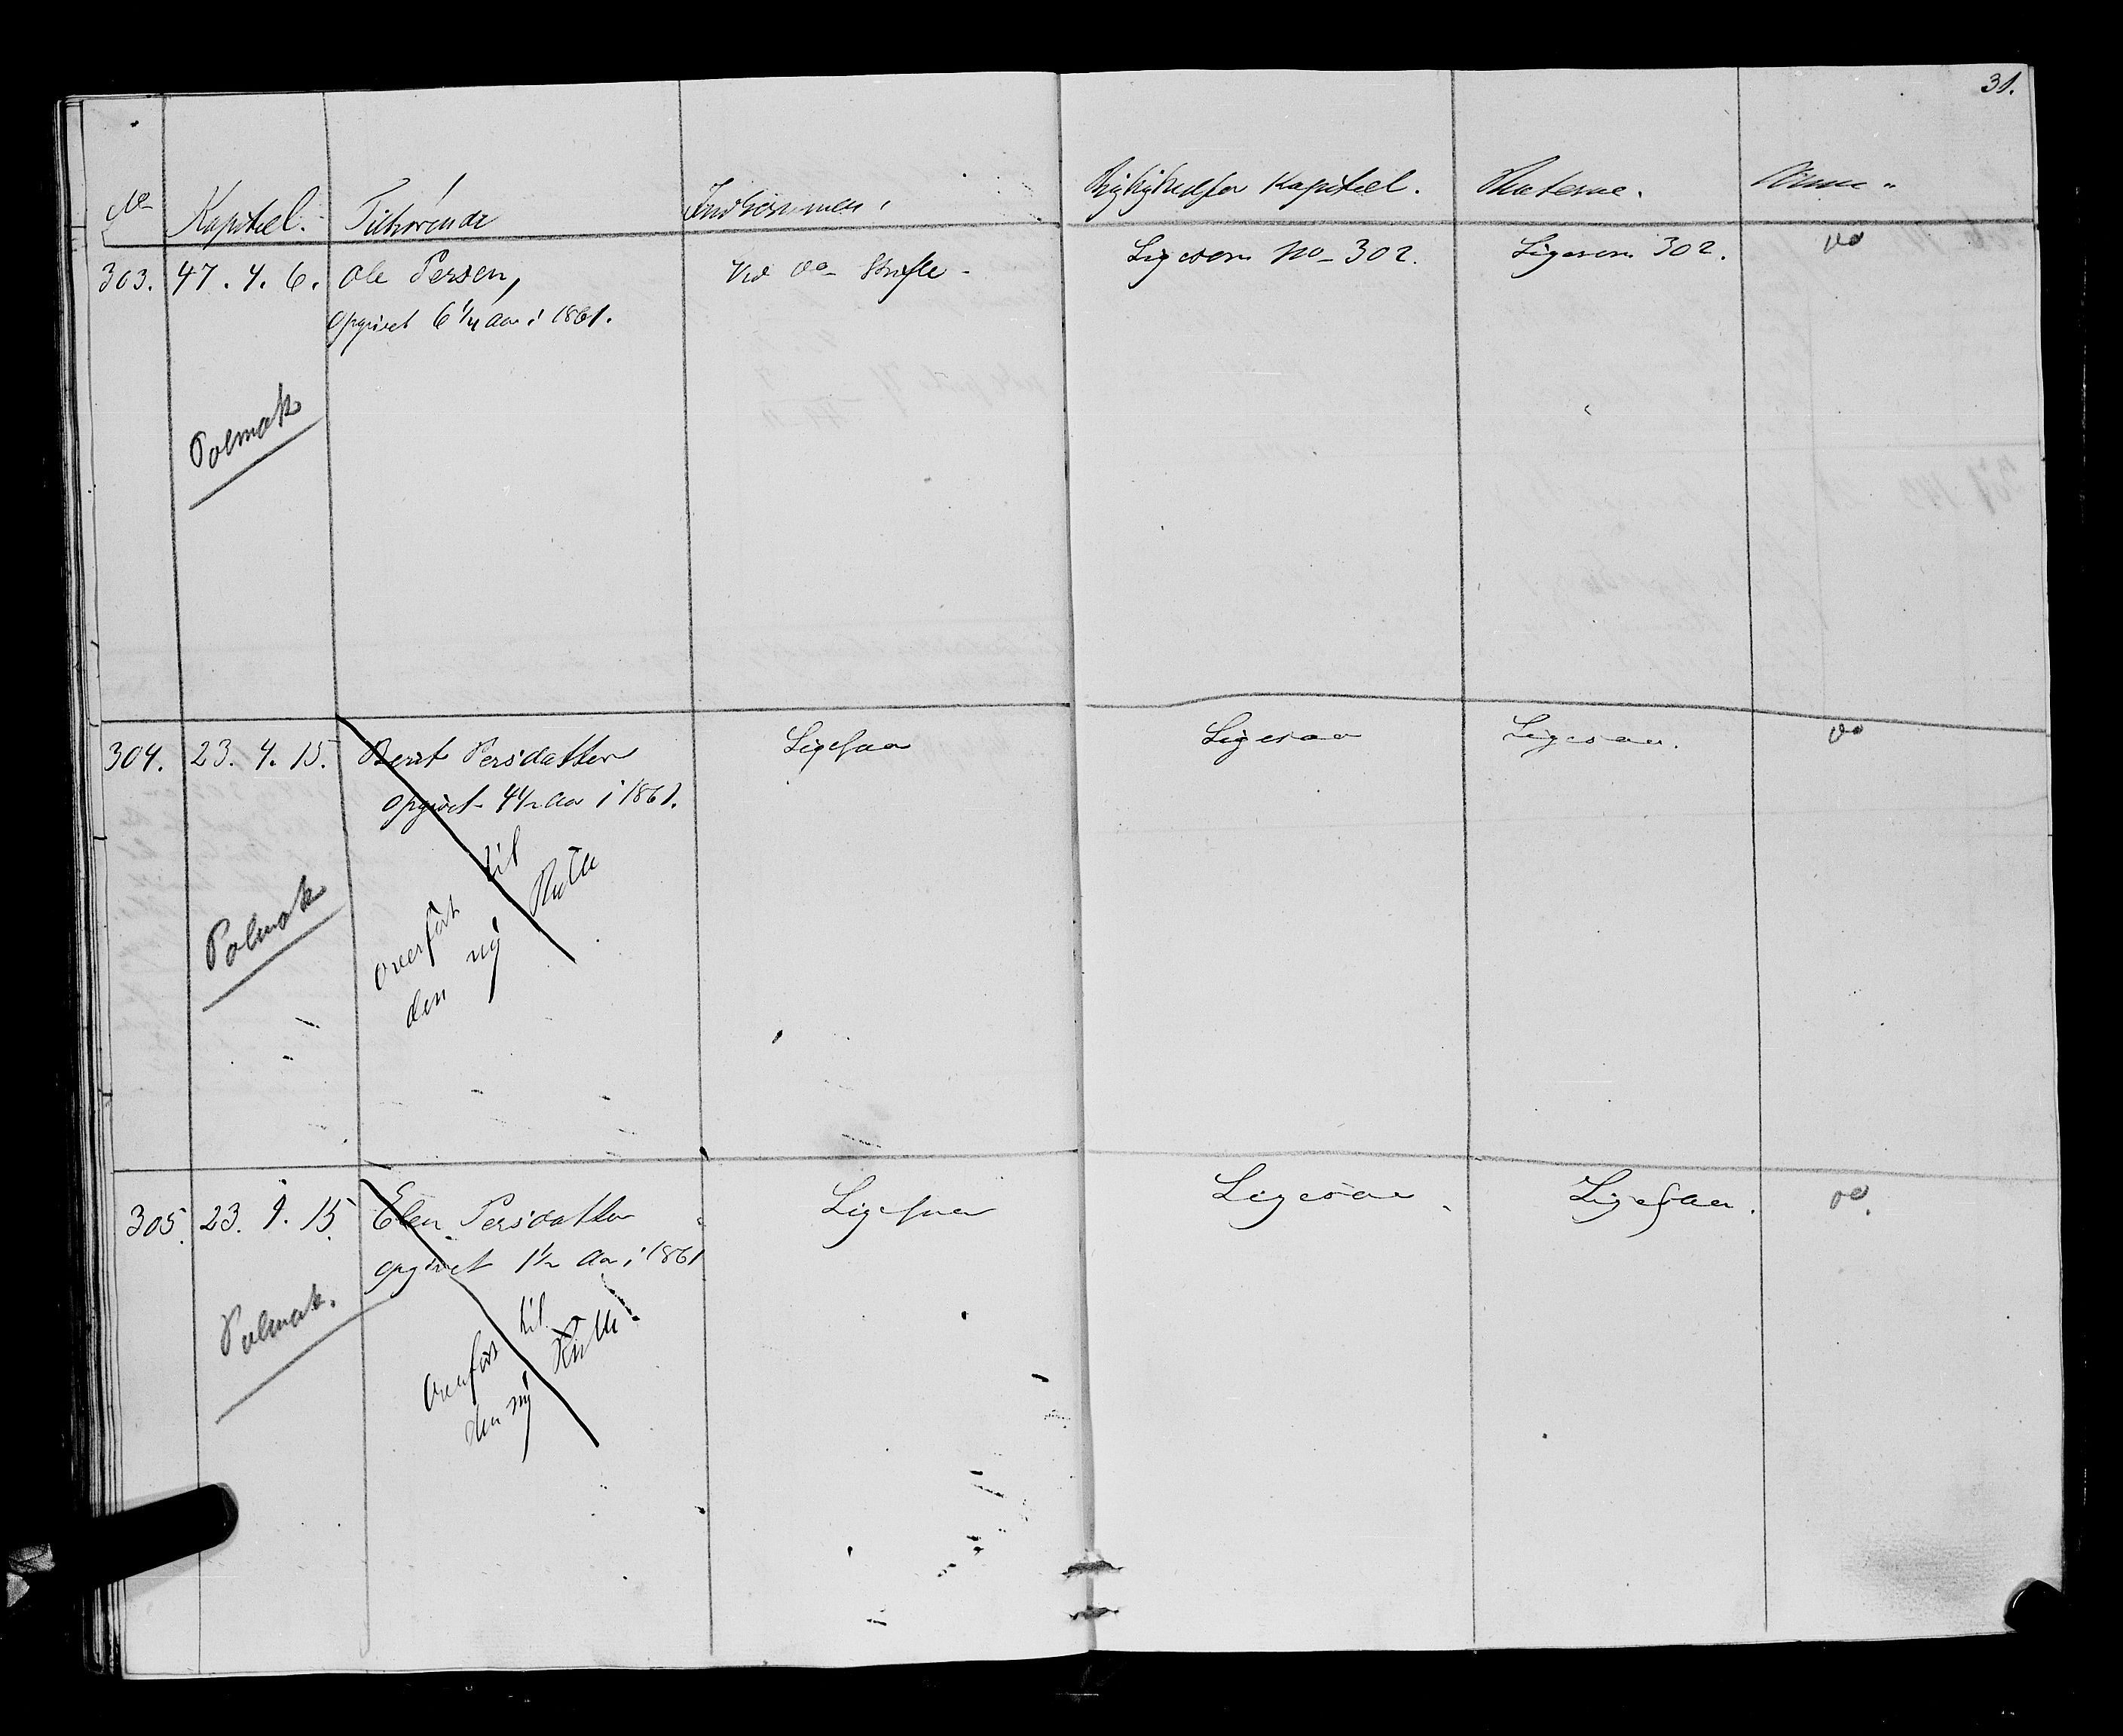 31.
No Kapitel. Tilhørende Indkommen. Kapitel. Renterne.
303. 47. 4. 6. Ole Persen, Vid do Skifte - Ligesom No 302. Ligesom 302. do
Opgivet 6 1/4 Aar i 1861.
Polmak
304. 23. 4. 15. Berit Persdatter Ligesaa Ligesaa Ligesaa. do
Opgivet 4 1/2 Aar i 1861.
overført til
den ny Rulle
Polmak
305. 23. 4. 15. Elen Persdatter Ligesaa Ligesaa Ligesaa. do.
opgivet 1 1/2 Aar i 1861
Overført til
den ny Rulle
Polmak.